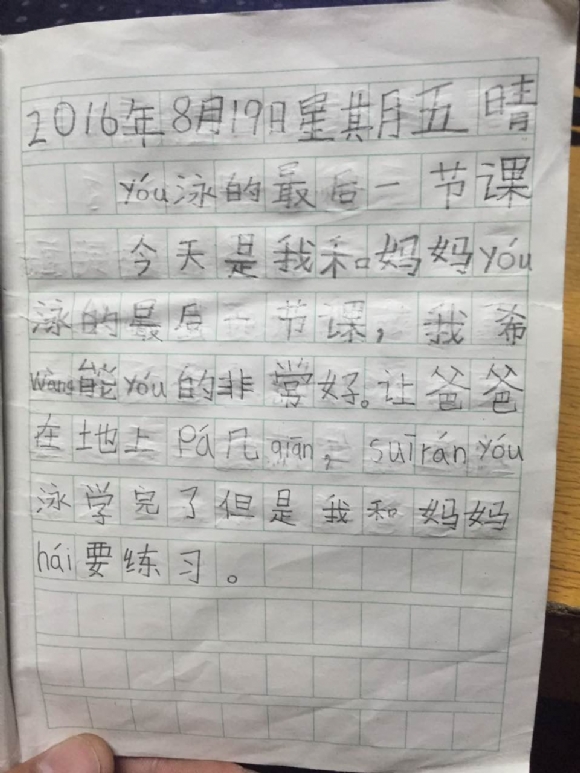 2016年8月19日星期五晴
yóu泳的最后一节课
今天是我和妈妈yóu
泳的最后一节课，我希
wàng能yóu的非常好。让爸爸
在地上pá几qiān，suīrán yóu
泳学完了但是我和妈妈
hái要练习。